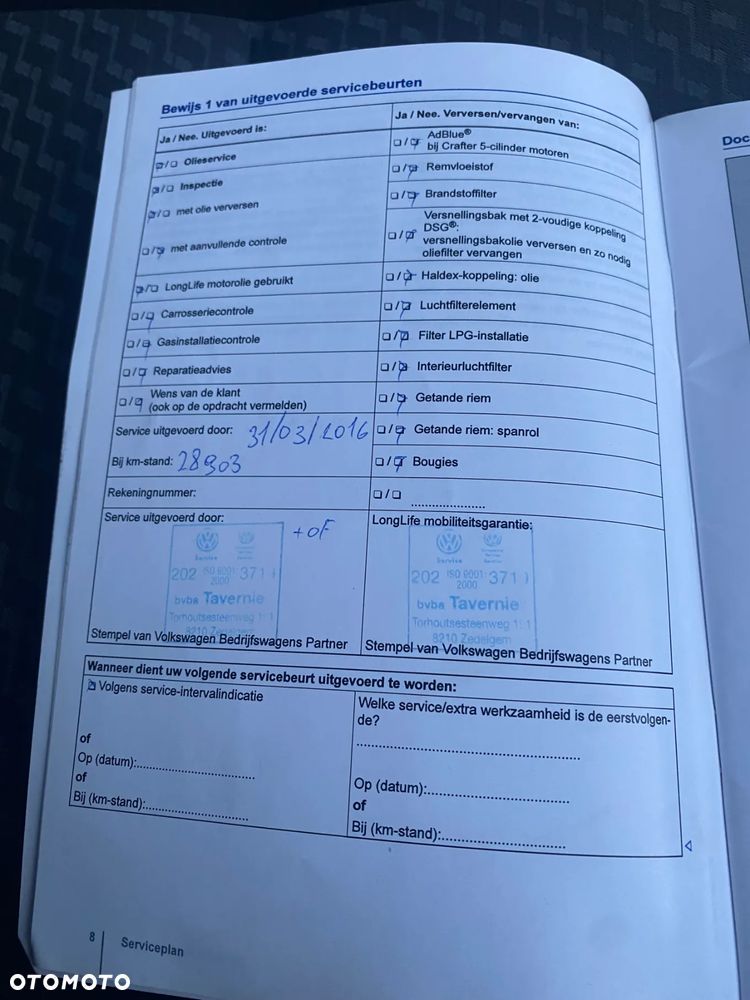 Bewijs 1 van uitgevoerde servicebeurten
Ja / Nee. Uitgevoerd is:
Olieservice
Inspectie
met olie verversen
met aanvullende controle
LongLife motorolie gebruikt
Carrosseriecontrole
Gasinstallatiecontrole
Reparatieadvies
Wens van de klant
(ook op de opdracht vermelden)
Service uitgevoerd door: 31/03/2016
Bij km-stand: 28903
Rekeningnummer:
Ja / Nee. Verversen/vervangen van:
AdBlue®
bij Crafter 5-cilinder motoren
Remvloeistof
Brandstoffilter
Versnellingsbak met 2-voudige koppeling
DSG®:
versnellingsbakolie verversen en zo nodig
oliefilter vervangen
Haldex-koppeling: olie
Luchtfilterelement
Filter LPG-installatie
Interieurluchtfilter
Getande riem
Getande riem: spanrol
Bougies
Service uitgevoerd door:
+ OF
Service
202 ISO 9001: 371
2000
bvba Tavernie
Torhoutsesteenweg
8210 Zedelgem
Stempel van Volkswagen Bedrijfswagens Partner
LongLife mobiliteitsgarantie:
Service
202 ISO 9001: 371
2000
bvba Tavernie
Torhoutsesteenweg
8210 Zedelgem
Stempel van Volkswagen Bedrijfswagens Partner
Wanneer dient uw volgende servicebeurt uitgevoerd te worden:
Volgens service-intervalindicatie
of
Op (datum):
of
Bij (km-stand):
Welke service/extra werkzaamheid is de eerstvolgen-
de?
Op (datum):
of
Bij (km-stand):
8 Serviceplan
Doc
OTOMOTO